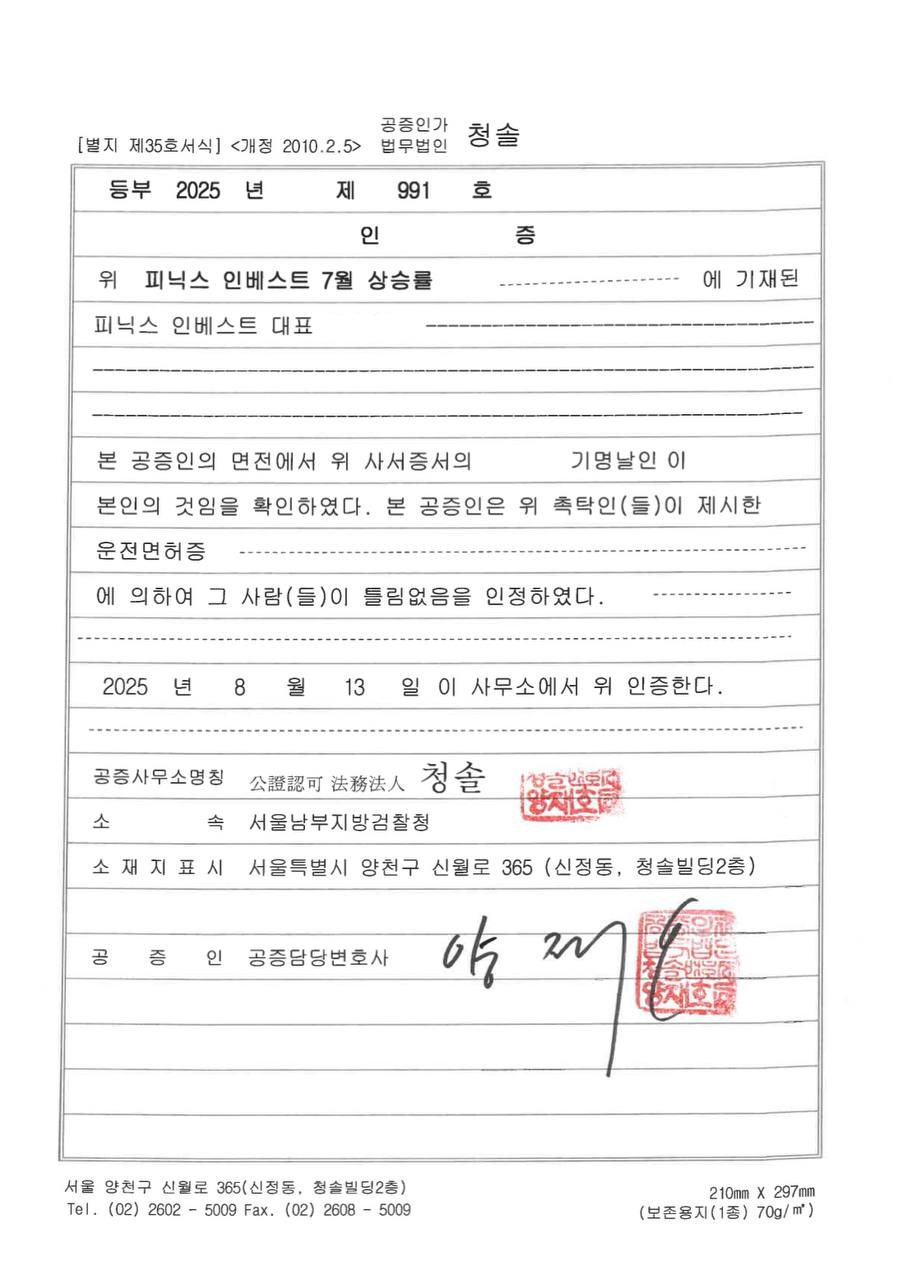 공증인가
[별지 제35호서식] <개정 2010.2.5> 법무법인 청솔
등부 2025 년 제 991 호
인 증
위 피닉스 인베스트 7월 상승률 에 기재된
피닉스 인베스트 대표
본 공증인의 면전에서 위 사서증서의 기명날인 이
본인의 것임을 확인하였다. 본 공증인은 위 촉탁인(들)이 제시한
운전면허증
에 의하여 그 사람(들)이 틀림없음을 인정하였다.
2025 년 8 월 13 일 이 사무소에서 위 인증한다.
공증사무소명칭 公證認可 法務法人 청솔
양재호
소 속 서울남부지방검찰청
소 재 지 표 시 서울특별시 양천구 신월로 365 (신정동, 청솔빌딩2층)
공 증 인 공증담당변호사 양재호
양재호
서울 양천구 신월로 365(신정동, 청솔빌딩2층)
Tel. (02) 2602 - 5009 Fax. (02) 2608 - 5009
210mm X 297mm
(보존용지(1종) 70g/㎡)